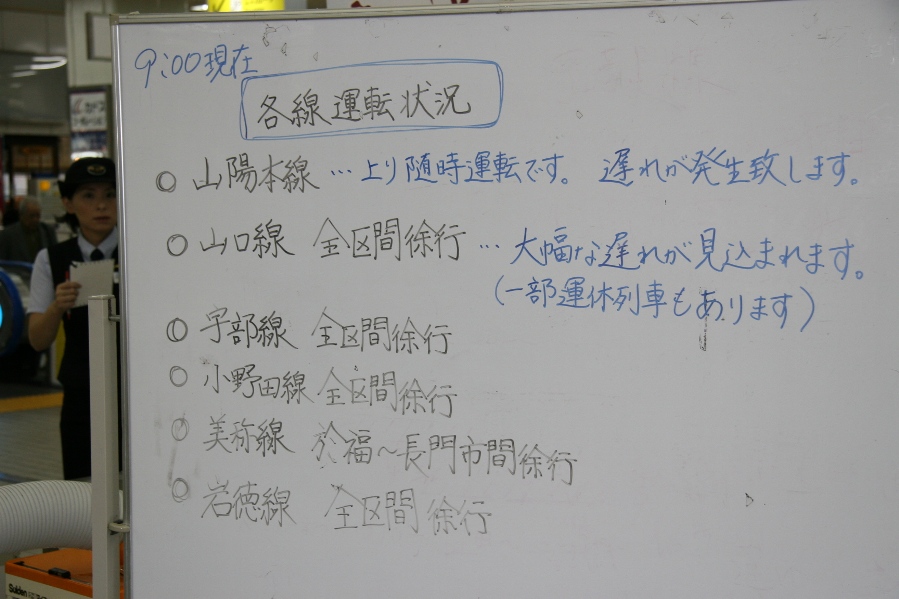 9:00現在
各線運転状況
○ 山陽本線 …上り随時運転です。 遅れが発生致します。
○ 山口線 全区間徐行 … 大幅な遅れが見込まれます。
(一部運休列車もあります)
○ 宇部線 全区間徐行
○ 小野田線 全区間徐行
○ 美祢線 於福～長門市間徐行
○ 岩徳線 全区間徐行
Suiden